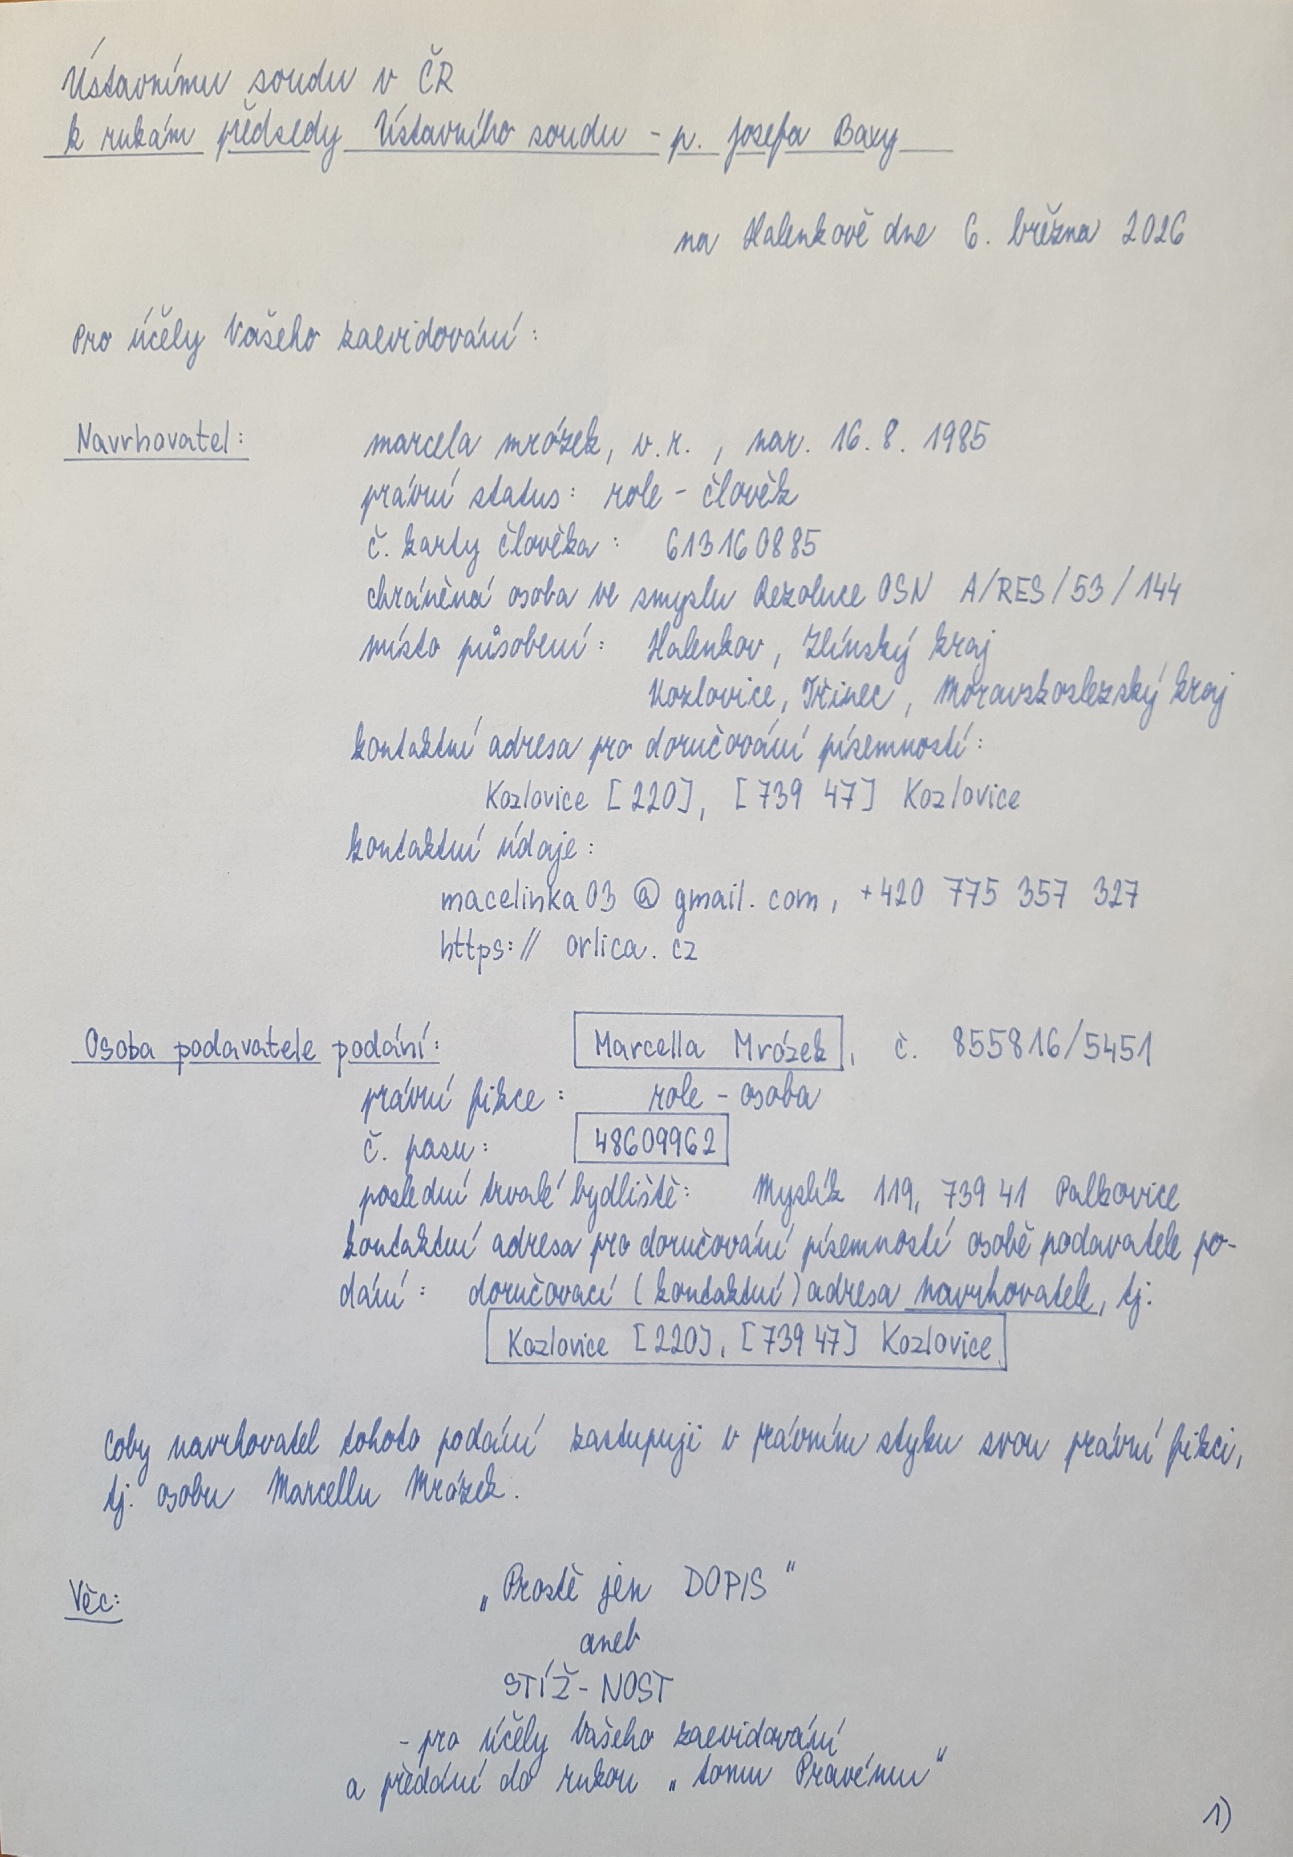 Ústavnímu soudu v ČR
k rukám předsedy Ústavního soudu - p. Josefa Baxy
na Halenkově dne 6. března 2026
Pro účely Vašeho zaevidování:
Navrhovatel: marcela mrózek, v.r., nar. 16.8.1985
právní status: role - člověk
č. karty člověka: 613160885
chráněná osoba ve smyslu Rezoluce OSN A/RES/53/144
místo působení: Halenkov, Zlínský kraj
Kozlovice, Třinec, Moravskoslezský kraj
kontaktní adresa pro doručování písemností:
Kozlovice [220], [739 47] Kozlovice
kontaktní údaje:
macelinka03@gmail.com, +420 775 357 327
https:// orlica.cz
Osoba podavatele podání: Marcella Mrózek, č. 855816/5451
právní fikce: role - osoba
č. pasu: 48609962
poslední trvalé bydliště: Myslík 119, 739 41 Palkovice
kontaktní adresa pro doručování písemností osobě podavatele po-
dání: doručovací (kontaktní) adresa navrhovatele, tj.
Kozlovice [220], [739 47] Kozlovice
Coby navrhovatel tohoto podání zastupuji v právním styku svou právní fikci,
tj. osobu Marcellu Mrózek.
Věc: „Prostě jen DOPIS"
aneb
STÍŽ-NOST
- pro účely Vašeho zaevidování
a předání do rukou „tomu Pravému"
1)